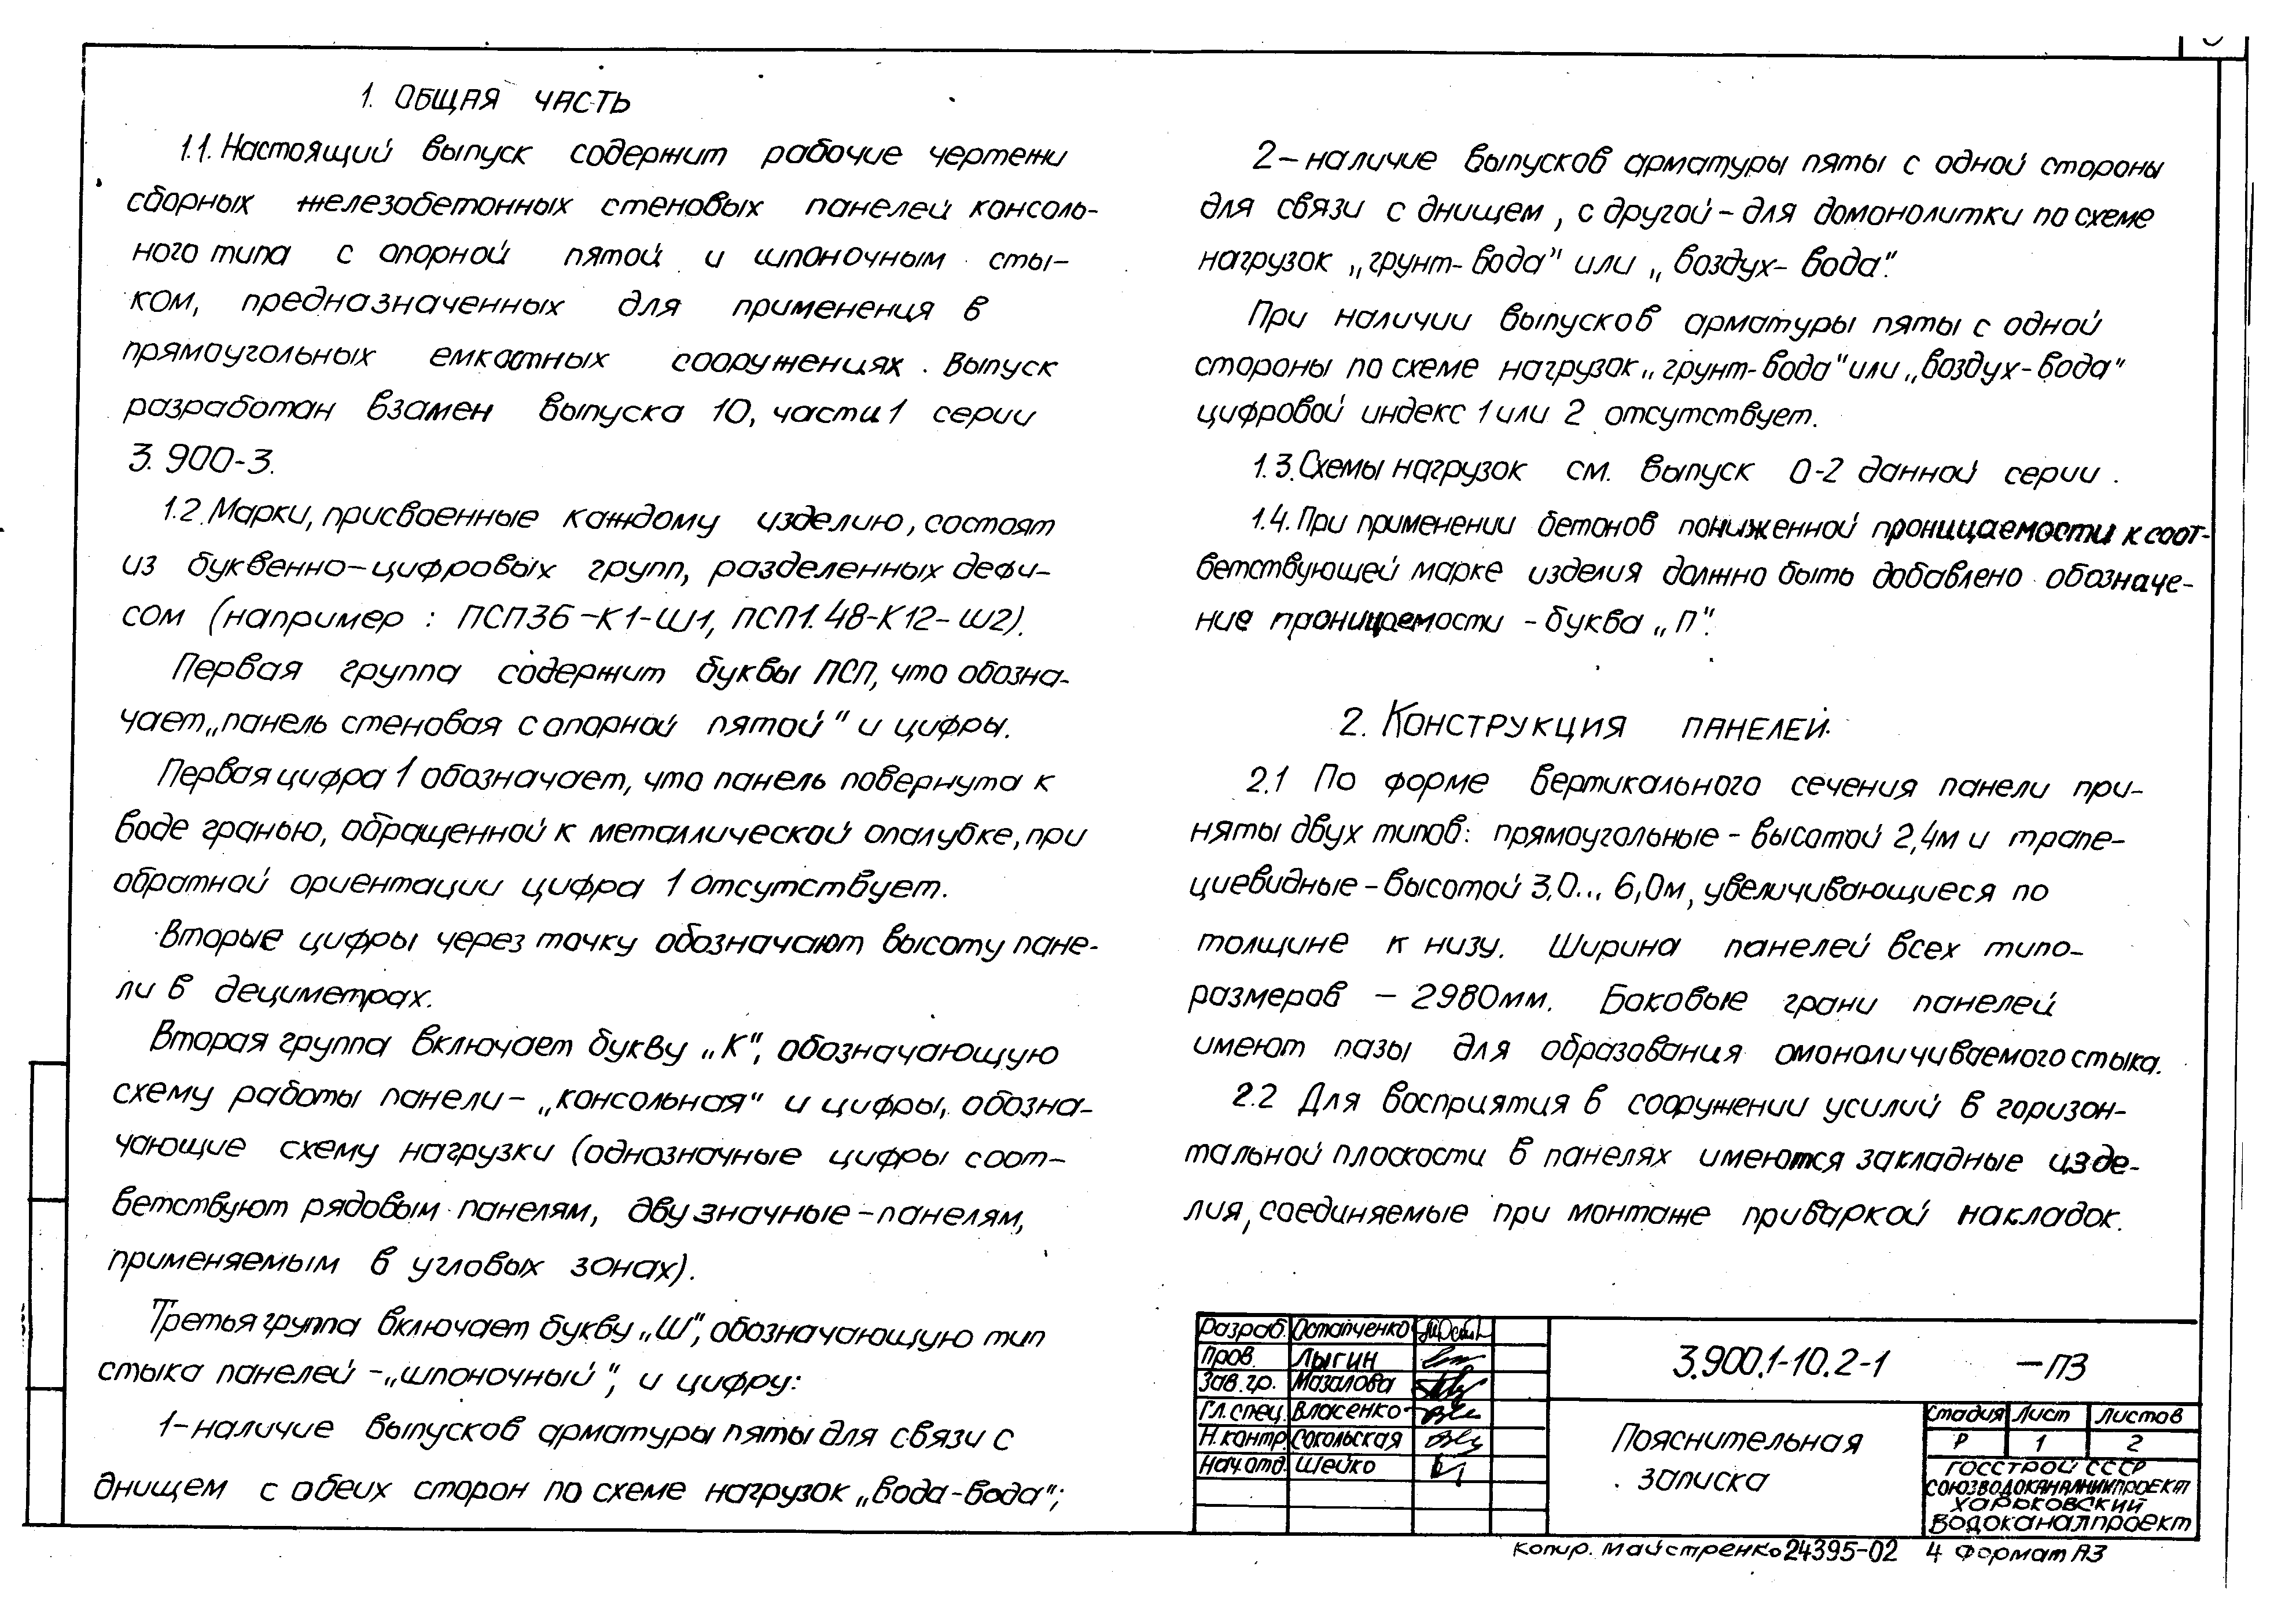 1. ОБЩАЯ ЧАСТЬ
1.1. Настоящий выпуск содержит рабочие чертежи
сборных железобетонных стеновых панелей консоль-
ного типа с опорной пятой и шпоночным сты-
ком, предназначенных для применения в
прямоугольных емкостных сооружениях. Выпуск
разработан взамен выпуска 10, части 1 серии
3.900-3.
1.2. Марки, присвоенные каждому изделию, состоят
из буквенно-цифровых групп, разделенных дефи-
сом (например: ПСП36-К1-Ш1, ПСП1.48-К12-Ш2).
Первая группа содержит буквы ПСП, что обозна-
чает „панель стеновая с опорной пятой" и цифры.
Первая цифра 1 обозначает, что панель повернута к
воде гранью, обращенной к металлической опалубке, при
обратной ориентации цифра 1 отсутствует.
Вторые цифры через точку обозначают высоту пане-
ли в дециметрах.
Вторая группа включает букву „К", обозначающую
схему работы панели - „консольная" и цифры, обозна-
чающие схему нагрузки (однозначные цифры соот-
ветствуют рядовым панелям, двузначные - панелям,
применяемым в угловых зонах).
Третья группа включает букву „Ш", обозначающую тип
стыка панелей - „шпоночный", и цифру:
1- наличие выпусков арматуры пяты для связи с
днищем с обеих сторон по схеме нагрузок „вода-вода";
2 - наличие выпусков арматуры пяты с одной стороны
для связи с днищем, с другой - для домонолитки по схеме
нагрузок „грунт-вода" или „воздух-вода".
При наличии выпусков арматуры пяты с одной
стороны по схеме нагрузок „грунт-вода" или „воздух-вода"
цифровой индекс 1 или 2 отсутствует.
1.3. Схемы нагрузок см. выпуск 0-2 данной серии.
1.4. При применении бетонов пониженной проницаемости к соот-
ветствующей марке изделия должно быть добавлено обозначе-
ние проницаемости - буква „П".
2. КОНСТРУКЦИЯ ПАНЕЛЕЙ
2.1 По форме вертикального сечения панели при-
няты двух типов: прямоугольные - высотой 2,4м и трапе-
циевидные - высотой 3,0... 6,0м, увеличивающиеся по
толщине к низу. Ширина панелей всех типо-
размеров - 2980мм. Боковые грани панелей
имеют пазы для образования омоноличиваемого стыка.
2.2 Для восприятия в сооружении усилий в горизон-
тальной плоскости в панелях имеются закладные изде-
лия, соединяемые при монтаже приваркой накладок.
Разраб. Остапченко
Пров. Лыгин
Зав. гр. Мазалова
Гл. спец. Власенко
Н. контр. Сокольская
Нач. отд. Шейко
3.900.1-10.2-1 -ПЗ
Пояснительная
записка
Стадия Лист Листов
Р 1 2
ГОССТРОЙ СССР
СОЮЗВОДОКАНАЛНИИПРОЕКТ
ХАРЬКОВСКИЙ
ВОДОКАНАЛПРОЕКТ
Копир. Майстренко 24395-02 4 Формат А3